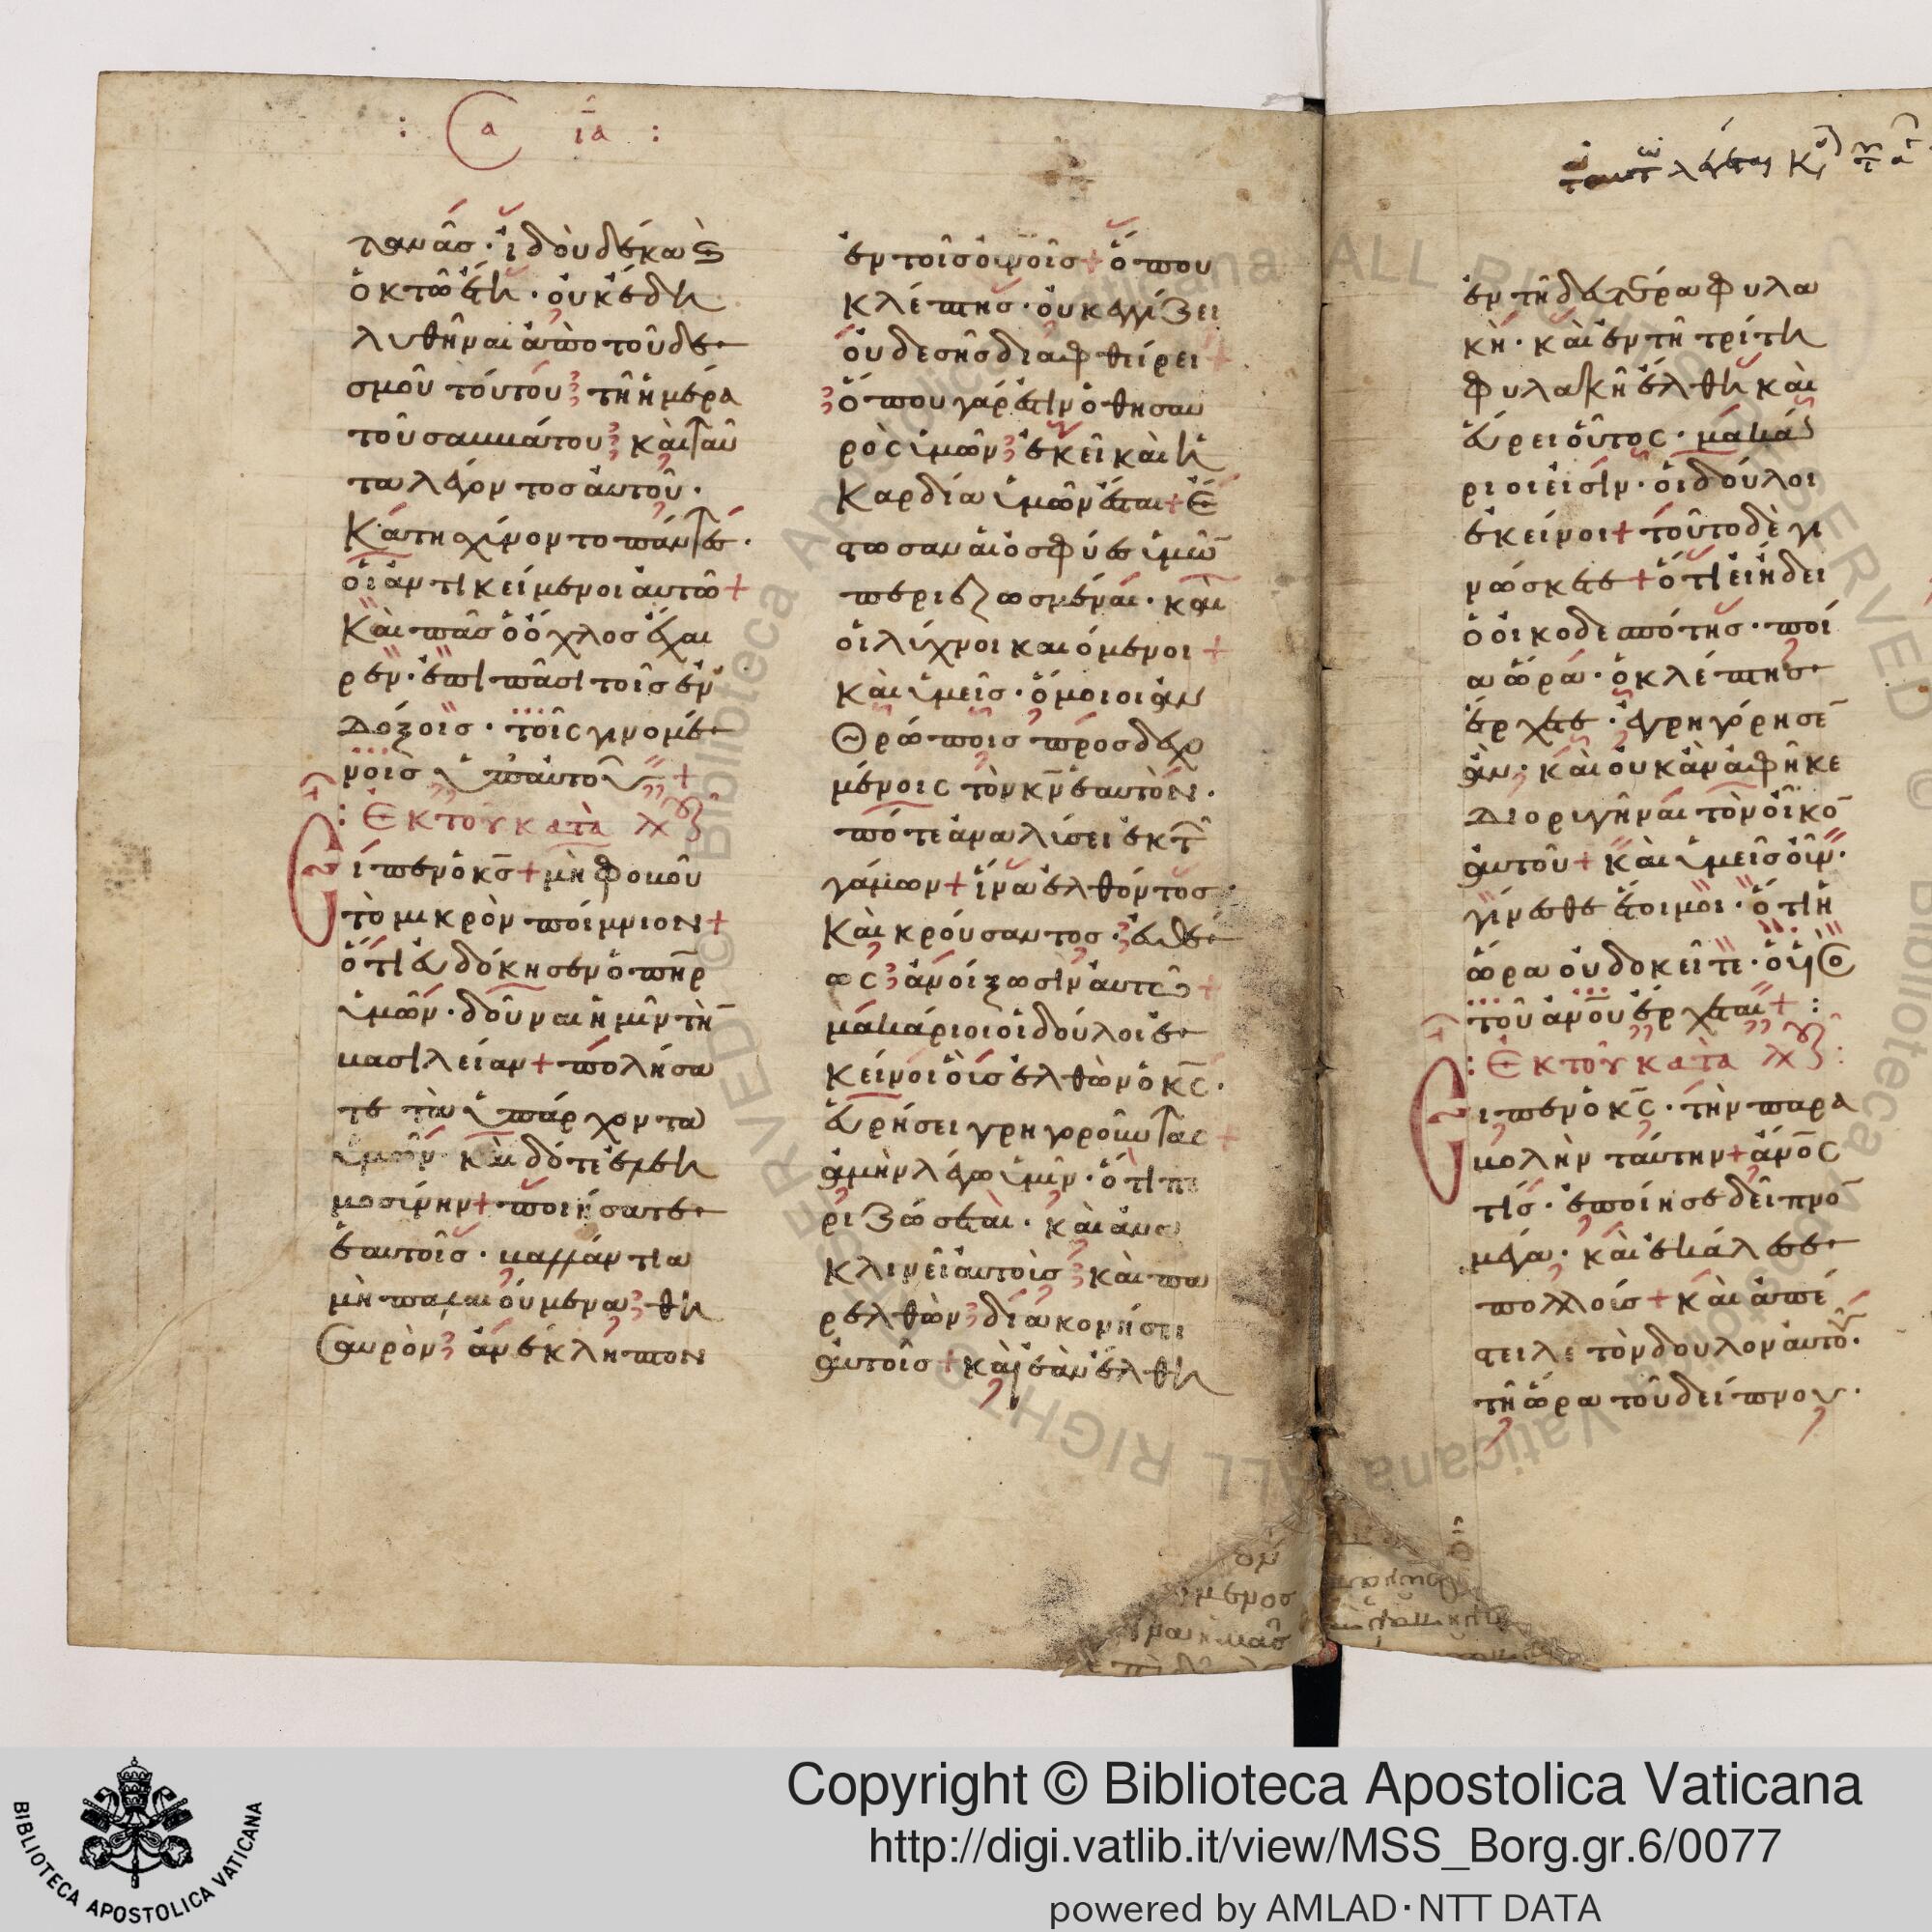 : Ϲα ῑα :
τανᾶσ· ἰδοὺ δέκα ϗ
ὀκτὼ ἔτη· οὐκ ἔδη
λυθῆναι ἀπὸ τοῦ δε
σμοῦ τούτου τῆ ἡμέρα
τοῦ σαββάτου καὶ ταῦ
τα λέγοντοσ αὐτοῦ·
κατησχύνοντο πάντες·
οἱ ἀντικείμενοι αὐτῶ +
Καὶ πᾶσ ὁ ὄχλοσ ἔχαι
ρεν· ἐπὶ πᾶσι τοῖσ ἐν
δόξοισ· τοῖς γινομέ
νοισ ὑπ αὐτοῦ +
: Ἐκ τοῦ κατὰ λχ
Εἶπεν ὁ κ̅σ̅ + μὴ φοβοῦ
τὸ μικρὸν ποίμνιον +
ὅτι εὐδόκησεν ὁ π̅η̅ρ
ὑμῶν· δοῦναι ἡμῖν τὴ̅
βασιλείαν + πολήσα
τε τὰ ὑπάρχοντα
ὑμῶν καὶ δότε ἐλεη
μοσύνην + ποιήσατε
ἑαυτοῖσ· βαλλάντια
μὴ παλαιούμενα θη
σαυρὸν ἀνέκληπον
ἐν τοῖσ ο̅υ̅ν̅οῖσ + ὅπου
κλέπτησ· οὐκ ἐγγίζει
οὐδε σῆσ διαφθείρει +
ὅπου γάρ ἐστιν ὁ θησαυ
ρὸς ὑμῶν ἐκεῖ καὶ ἡ
καρδία ὑμῶν ἔσται + Ἔ
στωσαν αἱ ὀσφύες ὑμῶ̅
περιεζωσμέναι· καὶ
οἱ λύχνοι καιόμενοι +
καὶ ὑμεῖσ· ὅμοιοι ἀν
θρώποισ προσδεχο
μένοις τὸν κ̅ν̅ ἑαυτὸν·
πότε ἀναλύσει ἐκ τ̅
γάμων + ἵνα ἐλθόντοσ·
Καὶ κρούσαντοσ· εὐθέ
ως ἀνοίξωσιν αὐτῶ +
μακάριοι οἱ δούλοι ἐ
κείνοι οἷσ ἐλθὼν ὁ κ̅ς̅·
εὑρήσει γρηγοροῦντας +
ἀμὴν λέγω ὑμῖν· ὅτι πε
ριζώσεται· καὶ ἀνα
κλινεῖ αὐτοὺσ καὶ πα
ρελθὼν διακονήσει
αὐτοῖσ + καὶ ἐὰν ἔλθη
ἐν τῆ δευτέρα φυλα
κὴ· καὶ ἐν τῆ τρίτη
φυλακῆ ἔλθη καὶ
εὕρει οὕτος· μακά
ριοι εἰσὶν· οἱ δούλοι
ἐκείνοι + τοῦτο δὲ γι
νώσκετε + ὅτι εἰ ἤδει
ὁ οἰκοδεσπότησ· ποί
α ὥρα· ὁ κλέπτησ
ἔρχεται· ἐγρηγόρησε̅
ἂν· καὶ οὐκ ἂν ἀφῆκε
διοριγῆναι τὸν οἶκο̅
αὐτοῦ + καὶ ὑμεῖσ οὖν·
γίνεσθε ἕτοιμοι· ὅτι ἡ
ὥρα οὐ δοκεῖτε· ὁ υ̅ς̅
τοῦ ἀν̅ο̅υ̅ ἔρχεται + :
: Ἐκ τοῦ κατὰ λχ :
Εἶπεν ὁ κ̅ς̅· τὴν παρα
βολὴν ταύτην + ἄν̅ο̅ς
τίσ· ἐποίησε δεῖπνο̅
μέγα· καὶ ἐκάλεσε
πολλοὺσ + καὶ ἀπέ
στειλε τὸν δουλον αὐτο̅·
τῆ ὥρα τοῦ δείπνου·
Copyright © Biblioteca Apostolica Vaticana
http://digi.vatlib.it/view/MSS_Borg.gr.6/0077
powered by AMLAD·NTT DATA
BIBLIOTECA APOSTOLICA VATICANA